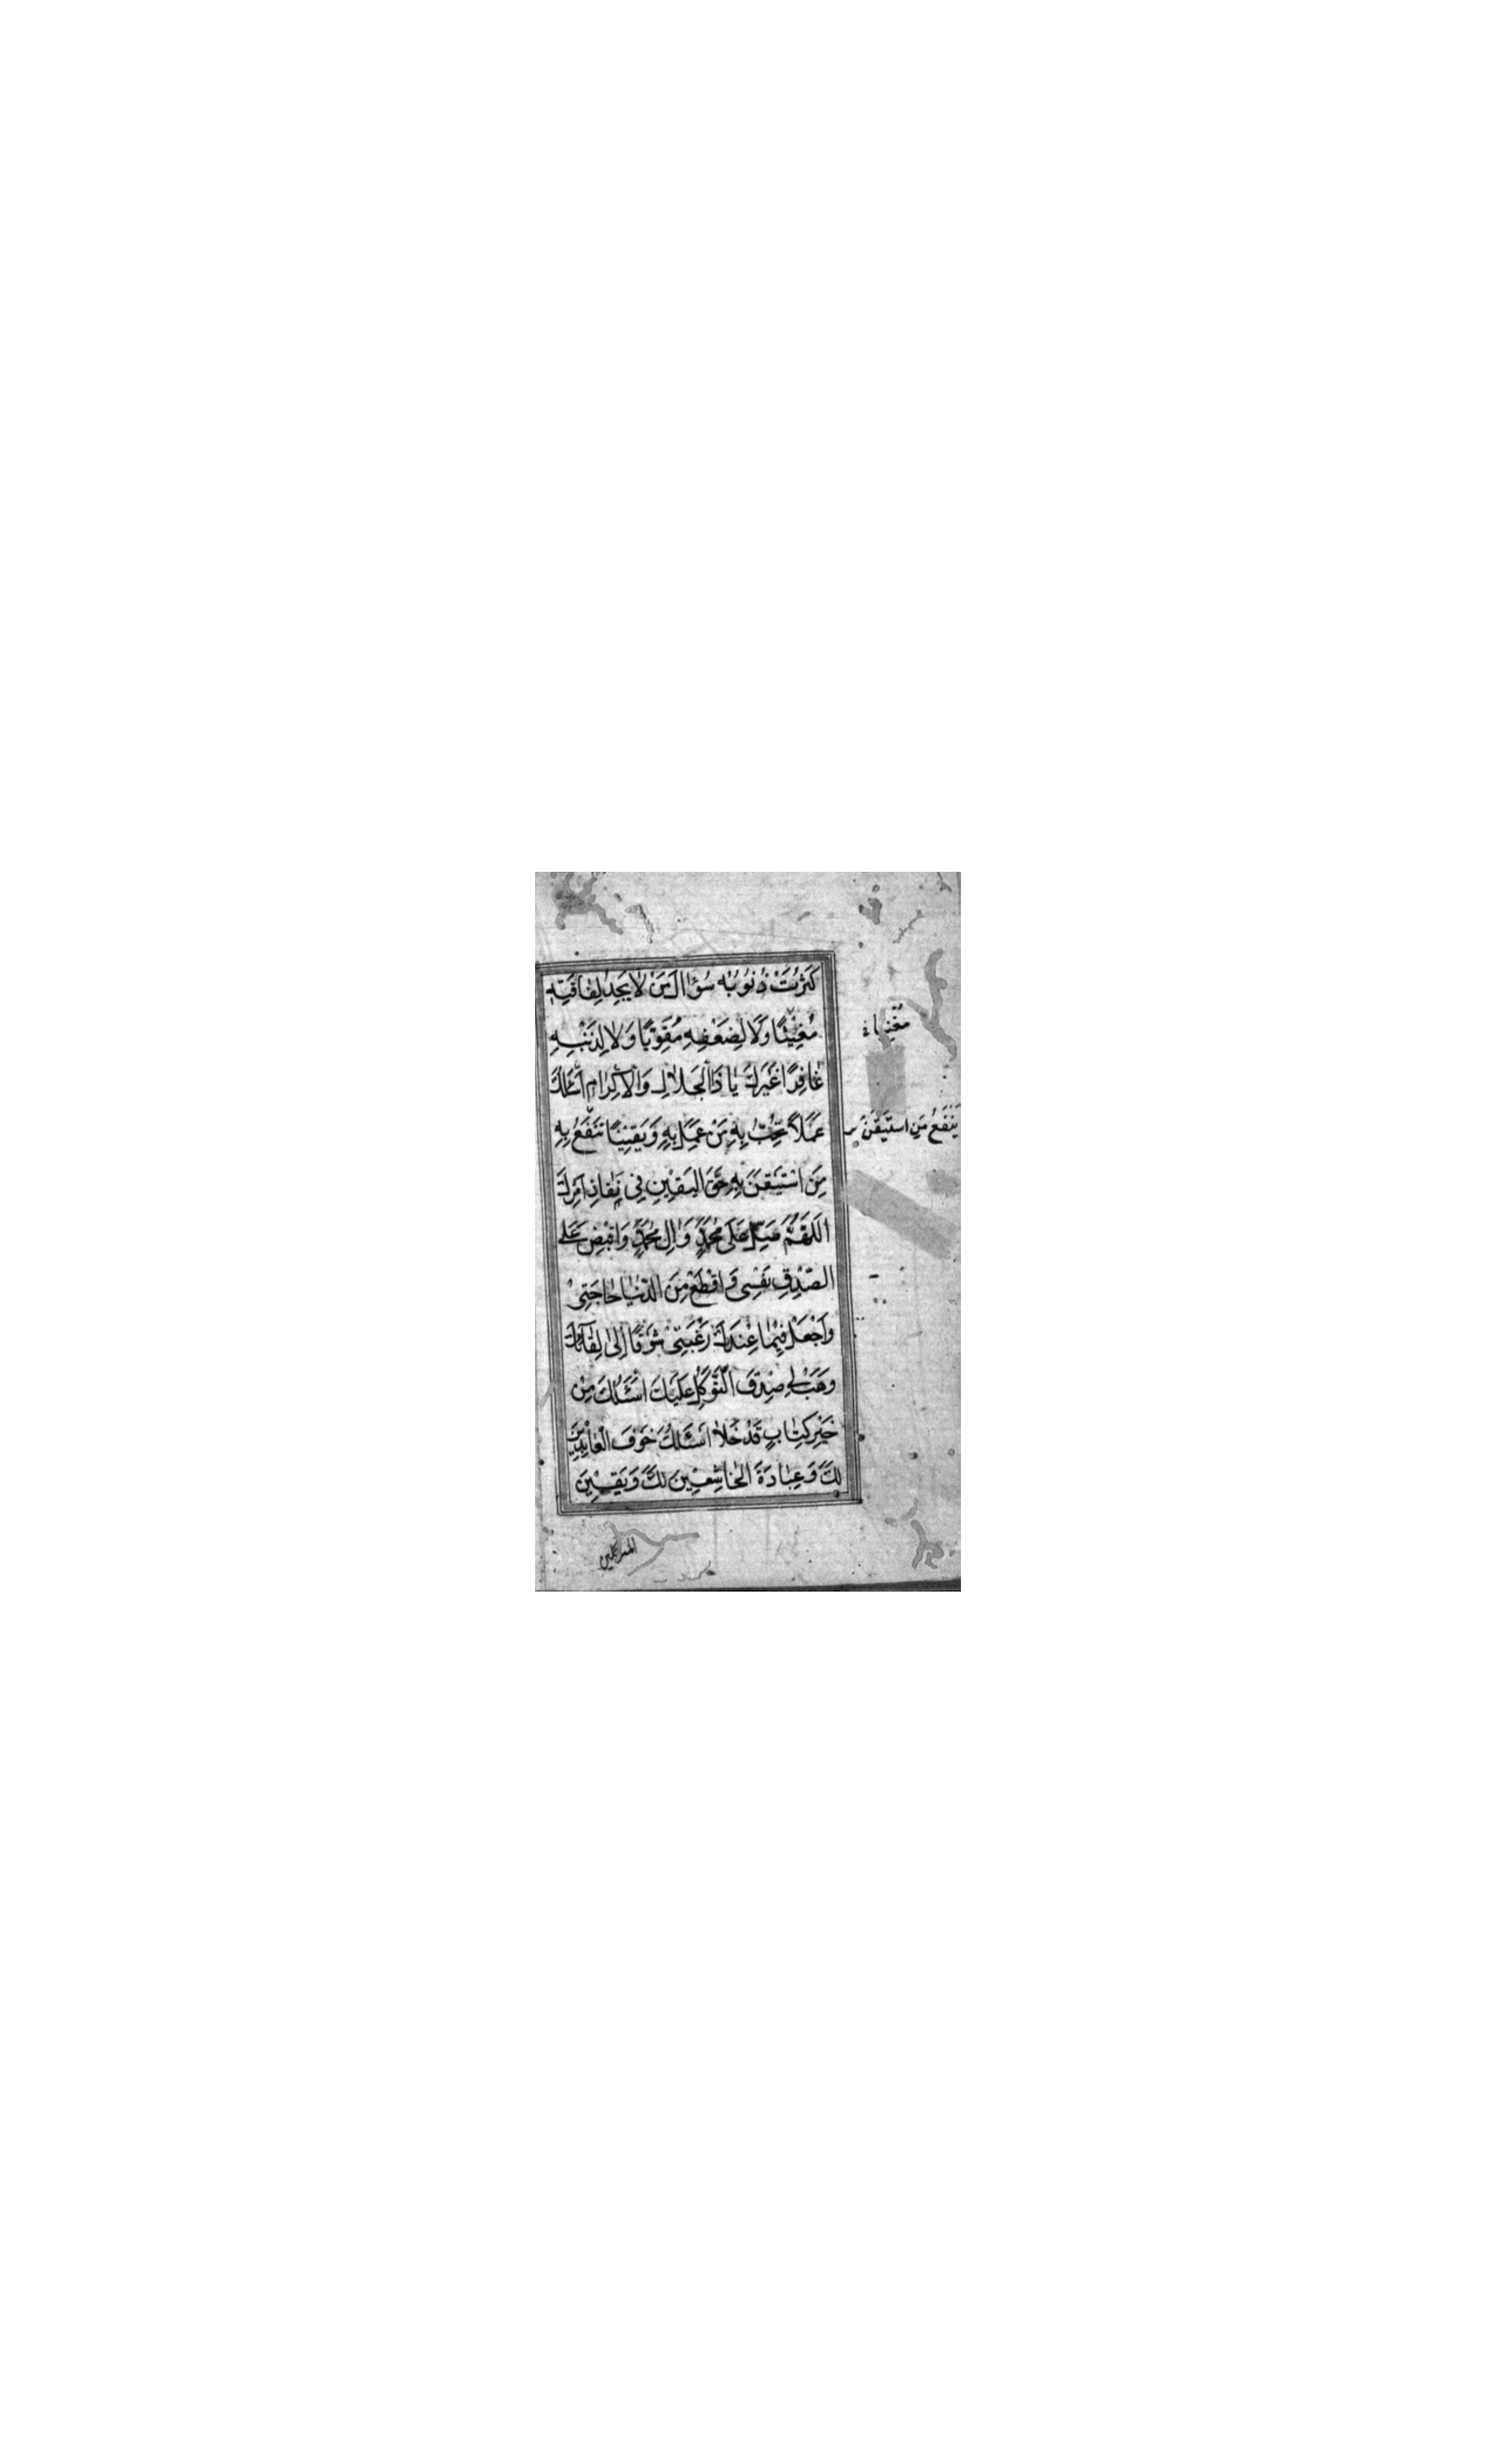 كَثُرَتْ ذُنُوبُهُ سُؤَالَ مَنْ لَا يَجِدُ لِفَاقَتِهِ
مُغِيْثًا وَلَا لِضَعْفِهِ مُقَوِّيًا وَلَا لِذَنْبِهِ
غَافِرًا غَيْرَكَ يَا ذَا الْجَلَالِ وَالْاِكْرَامِ اَسْئَلُكَ
عَمَلًا تُحِبُّ بِهِ مَنْ عَمِلَ بِهِ وَيَقِيْنًا تَنْفَعُ بِهِ
مَنِ اسْتَيْقَنَ بِهِ حَقَّ الْيَقِيْنِ فِي نَفَاذِ اَمْرِكَ
اَللّٰهُمَّ صَلِّ عَلَى مُحَمَّدٍ وَاٰلِ مُحَمَّدٍ وَاقْبِضْ عَلَى
الصِّدْقِ نَفْسِي وَاقْطَعْ مِنَ الدُّنْيَا حَاجَتِيْ
وَاجْعَلْ فِيْمَا عِنْدَكَ رَغْبَتِيْ شَوْقًا اِلَى لِقَائِكَ
وَهَبْ لِي صِدْقَ التَّوَكُّلِ عَلَيْكَ اَسْئَلُكَ مِنْ
خَيْرِ كِتَابٍ قَدْ خَلَا اَسْئَلُكَ خَوْفَ الْعَابِدِيْنَ
لَكَ وَعِبَادَةَ الْخَاشِعِيْنَ لَكَ وَيَقِيْنَ
المتوكلين
يَنْفَعُ مَنِ اسْتَيْقَنَ